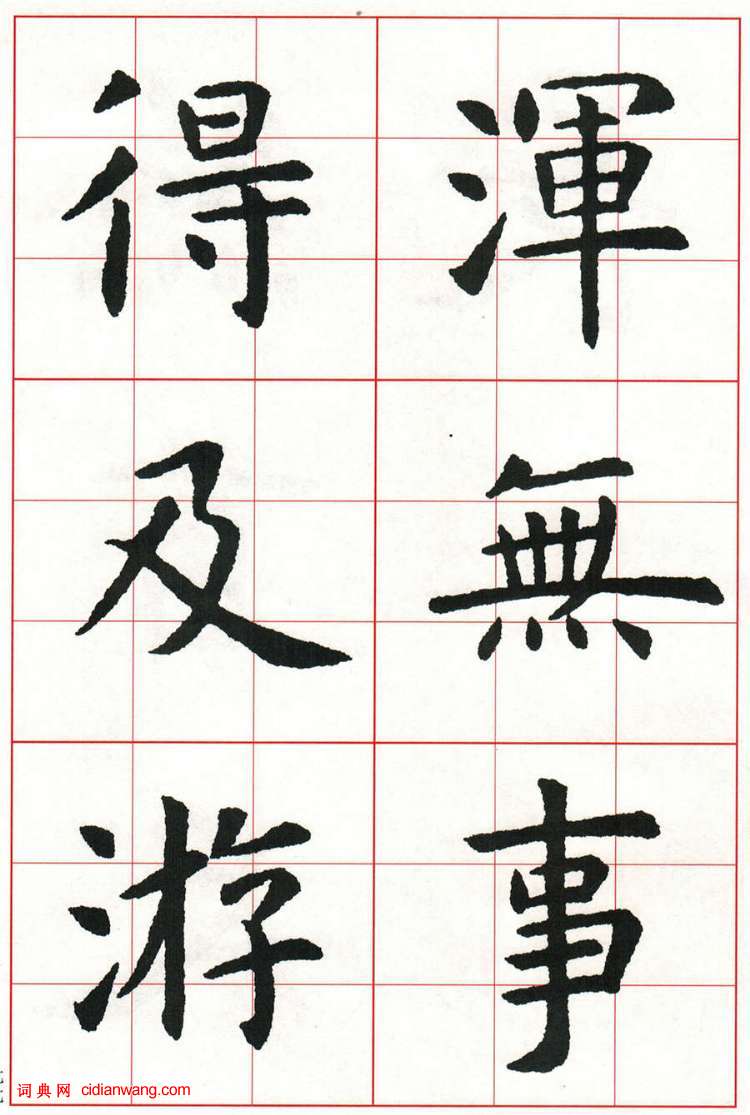 渾無事
得及游
词典网 cidianwang.com